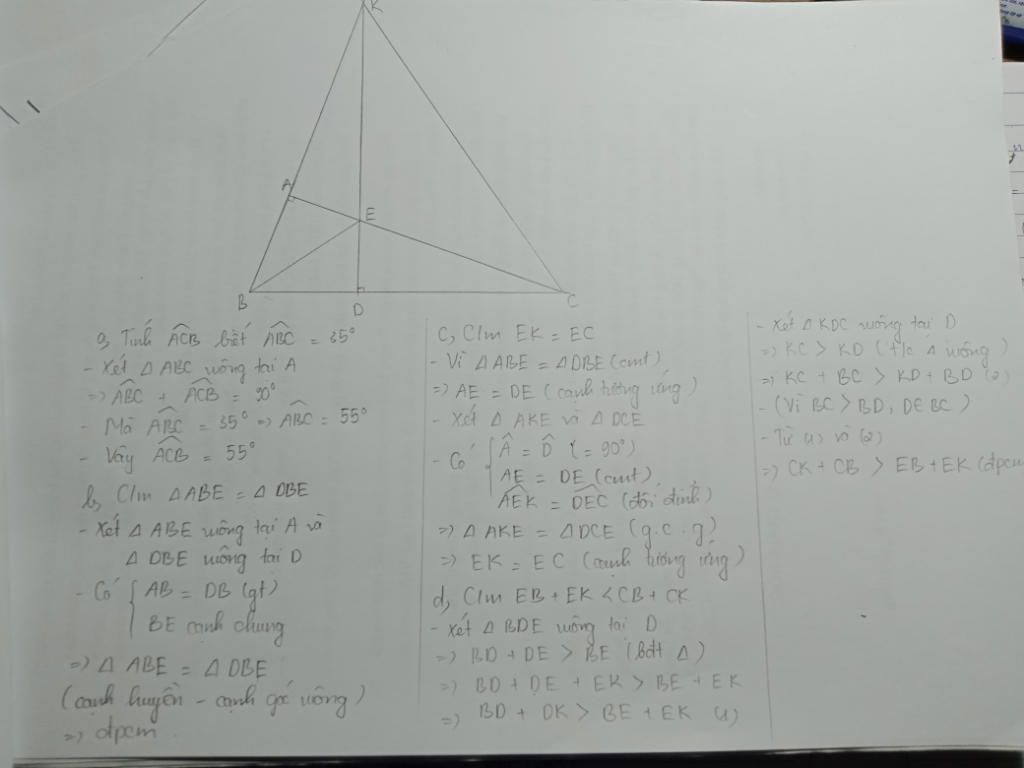 K
A
E
B
D
C
a, Tính ACB biết ABC = 35°
- Xét △ ABC vuông tại A
=> ABC + ACB = 90°
- Mà ABC = 35° => ABC = 55°
- Vậy ACB = 55°
b, C/m △ ABE = △ DBE
- Xét △ ABE vuông tại A và
△ DBE vuông tại D
- Có { AB = DB (gt)
BE cạnh chung
=> △ ABE = △ DBE
(cạnh huyền - cạnh góc vuông)
=> đpcm
c, C/m EK = EC
- Vì △ ABE = △ DBE (cmt)
=> AE = DE (cạnh tương ứng)
- Xét △ AKE và △ DCE
- Có { Â = D̂ (= 90°)
AE = DE (cmt)
AEK = DEC (đối đỉnh)
=> △ AKE = △ DCE (g.c.g)
=> EK = EC (cạnh tương ứng)
d, C/m EB + EK < CB + CK
- Xét △ BDE vuông tại D
=> BD + DE > BE (bđt △)
=> BD + DE + EK > BE + EK
=> BD + DK > BE + EK (1)
- Xét △ KDC vuông tại D
=> KC > KD (t/c △ vuông)
=> KC + BC > KD + BD (2)
- (Vì BC > BD, D∈BC)
- Từ (1) và (2)
=> CK + CB > EB + EK (đpcm